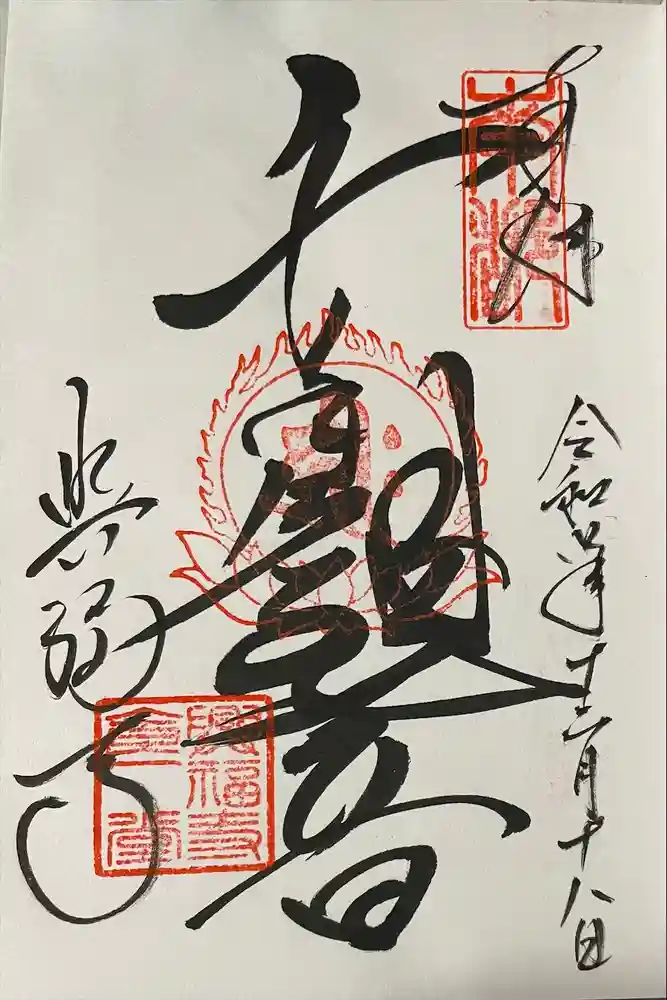 奉拝
千手観音
令和
年十二月十八日
興福寺
興福寺